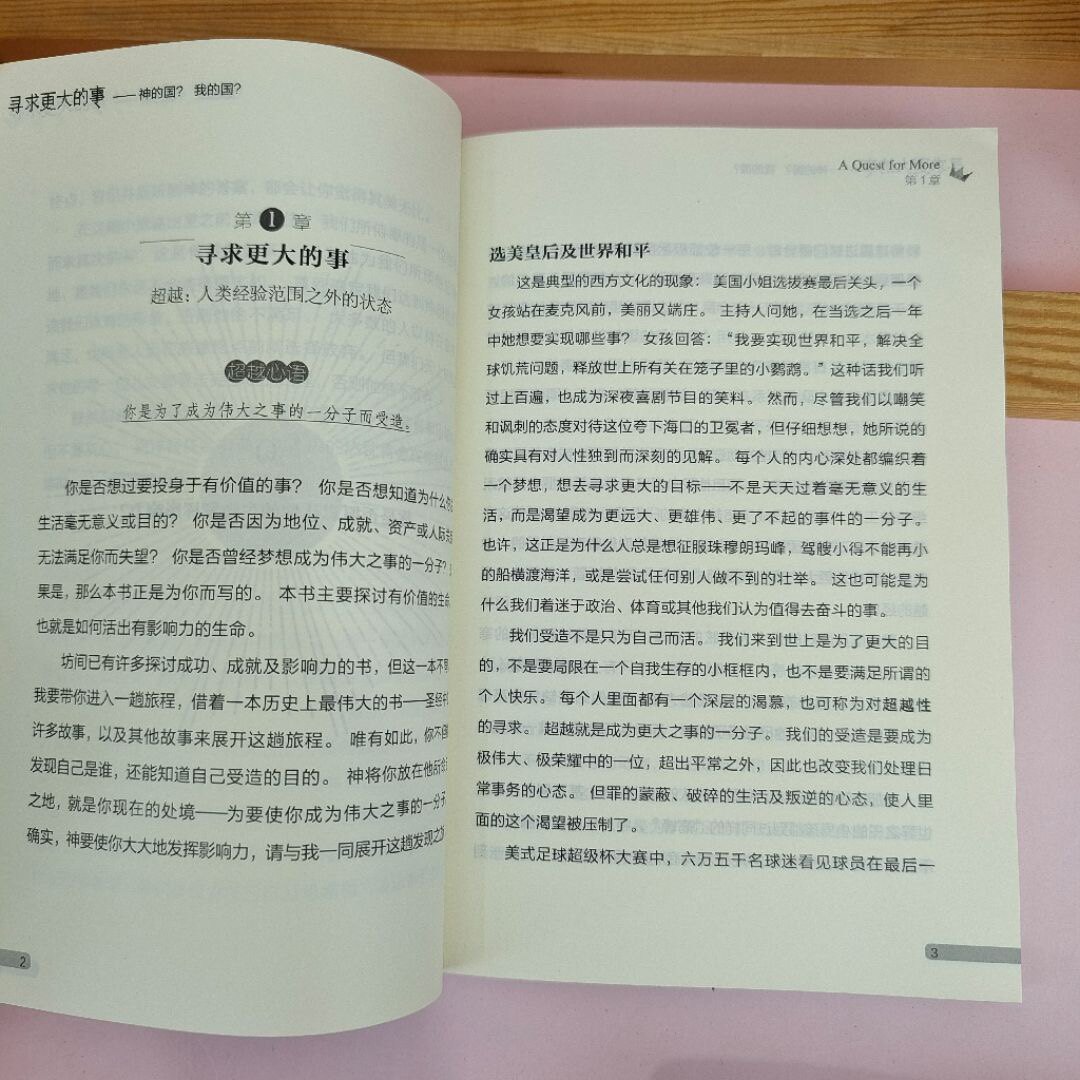 寻求更大的事 ——神的国? 我的国?
第1章
寻求更大的事
超越：人类经验范围之外的状态
超越心语
你是为了成为伟大之事的一分子而受造。
你是否想过要投身于有价值的事? 你是否想知道为什么你
生活毫无意义或目的? 你是否因为地位、成就、资产或人际
无法满足你而失望? 你是否曾经梦想成为伟大之事的一分子?
果是，那么本书正是为你而写的。 本书主要探讨有价值的生命
也就是如何活出有影响力的生命。
坊间已有许多探讨成功、成就及影响力的书，但这一本不
我要带你进入一趟旅程，借着一本历史上最伟大的书——圣经
许多故事，以及其他故事来展开这趟旅程。 唯有如此，你不
发现自己是谁，还能知道自己受造的目的。 神将你放在他所
之地，就是你现在的处境——为要使你成为伟大之事的一分子
确实，神要使你大大地发挥影响力，请与我一同展开这趟发现之
2
A Quest for More
第1章
选美皇后及世界和平
这是典型的西方文化的现象： 美国小姐选拔赛最后关头，一个
女孩站在麦克风前，美丽又端庄。 主持人问她，在当选之后一年
中她想要实现哪些事? 女孩回答：“我要实现世界和平，解决全
球饥荒问题，释放世上所有关在笼子里的小鹦鹉。” 这种话我们听
过上百遍，也成为深夜喜剧节目的笑料。 然而，尽管我们以嘲笑
和讽刺的态度对待这位夸下海口的卫冕者，但仔细想想，她所说的
确实具有对人性独到而深刻的见解。 每个人的内心深处都编织着
一个梦想，想去寻求更大的目标——不是天天过着毫无意义的生
活，而是渴望成为更远大、更雄伟、更了不起的事件的一分子。
也许，这正是为什么人总是想征服珠穆朗玛峰，驾艘小得不能再小
的船横渡海洋，或是尝试任何别人做不到的壮举。 这也可能是为
什么我们着迷于政治、体育或其他我们认为值得去奋斗的事。
我们受造不是只为自己而活。 我们来到世上是为了更大的目
的，不是要局限在一个自我生存的小框框内，也不是要满足所谓的
个人快乐。 每个人里面都有一个深层的渴慕，也可称为对超越性
的寻求。 超越就是成为更大之事的一分子。 我们的受造是要成为
极伟大、极荣耀中的一位，超出平常之外，因此也改变我们处理日
常事务的心态。 但罪的蒙蔽、破碎的生活及叛逆的心态，使人里
面的这个渴望被压制了。
美式足球超级杯大赛中，六万五千名球迷看见球员在最后一
3